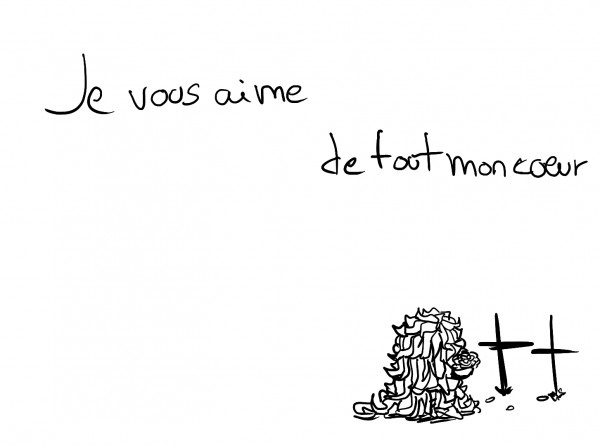 Je vous aime
de tout mon coeur